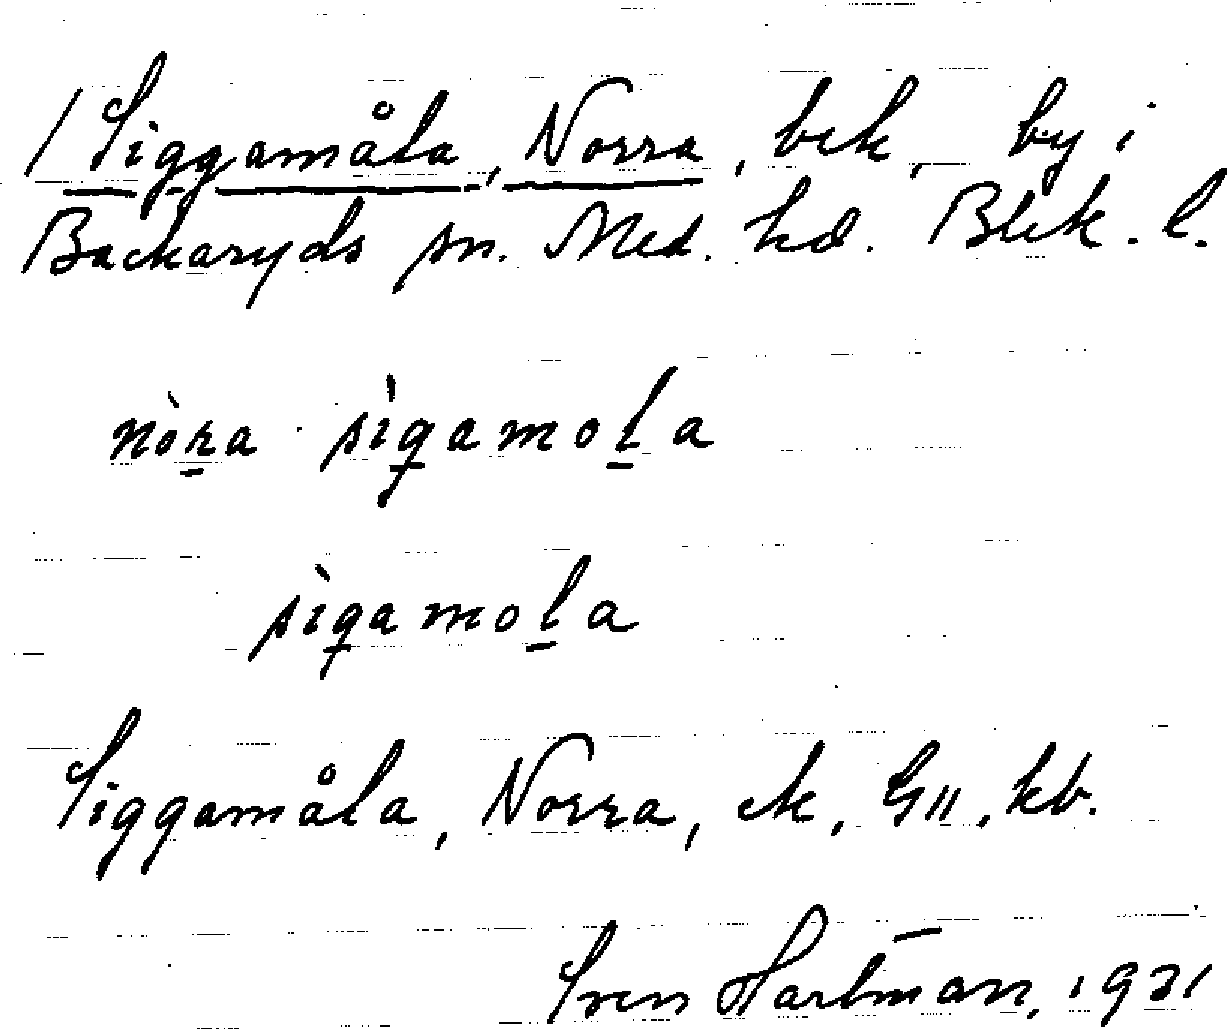 / Siggamåla, Norra, bek, by i
Backaryds sn. Med. hd. Blek. l.
nòra sìgamola
sìgamola
Siggamåla, Norra, ek, GII, kb.
Sven Hartman, 1931